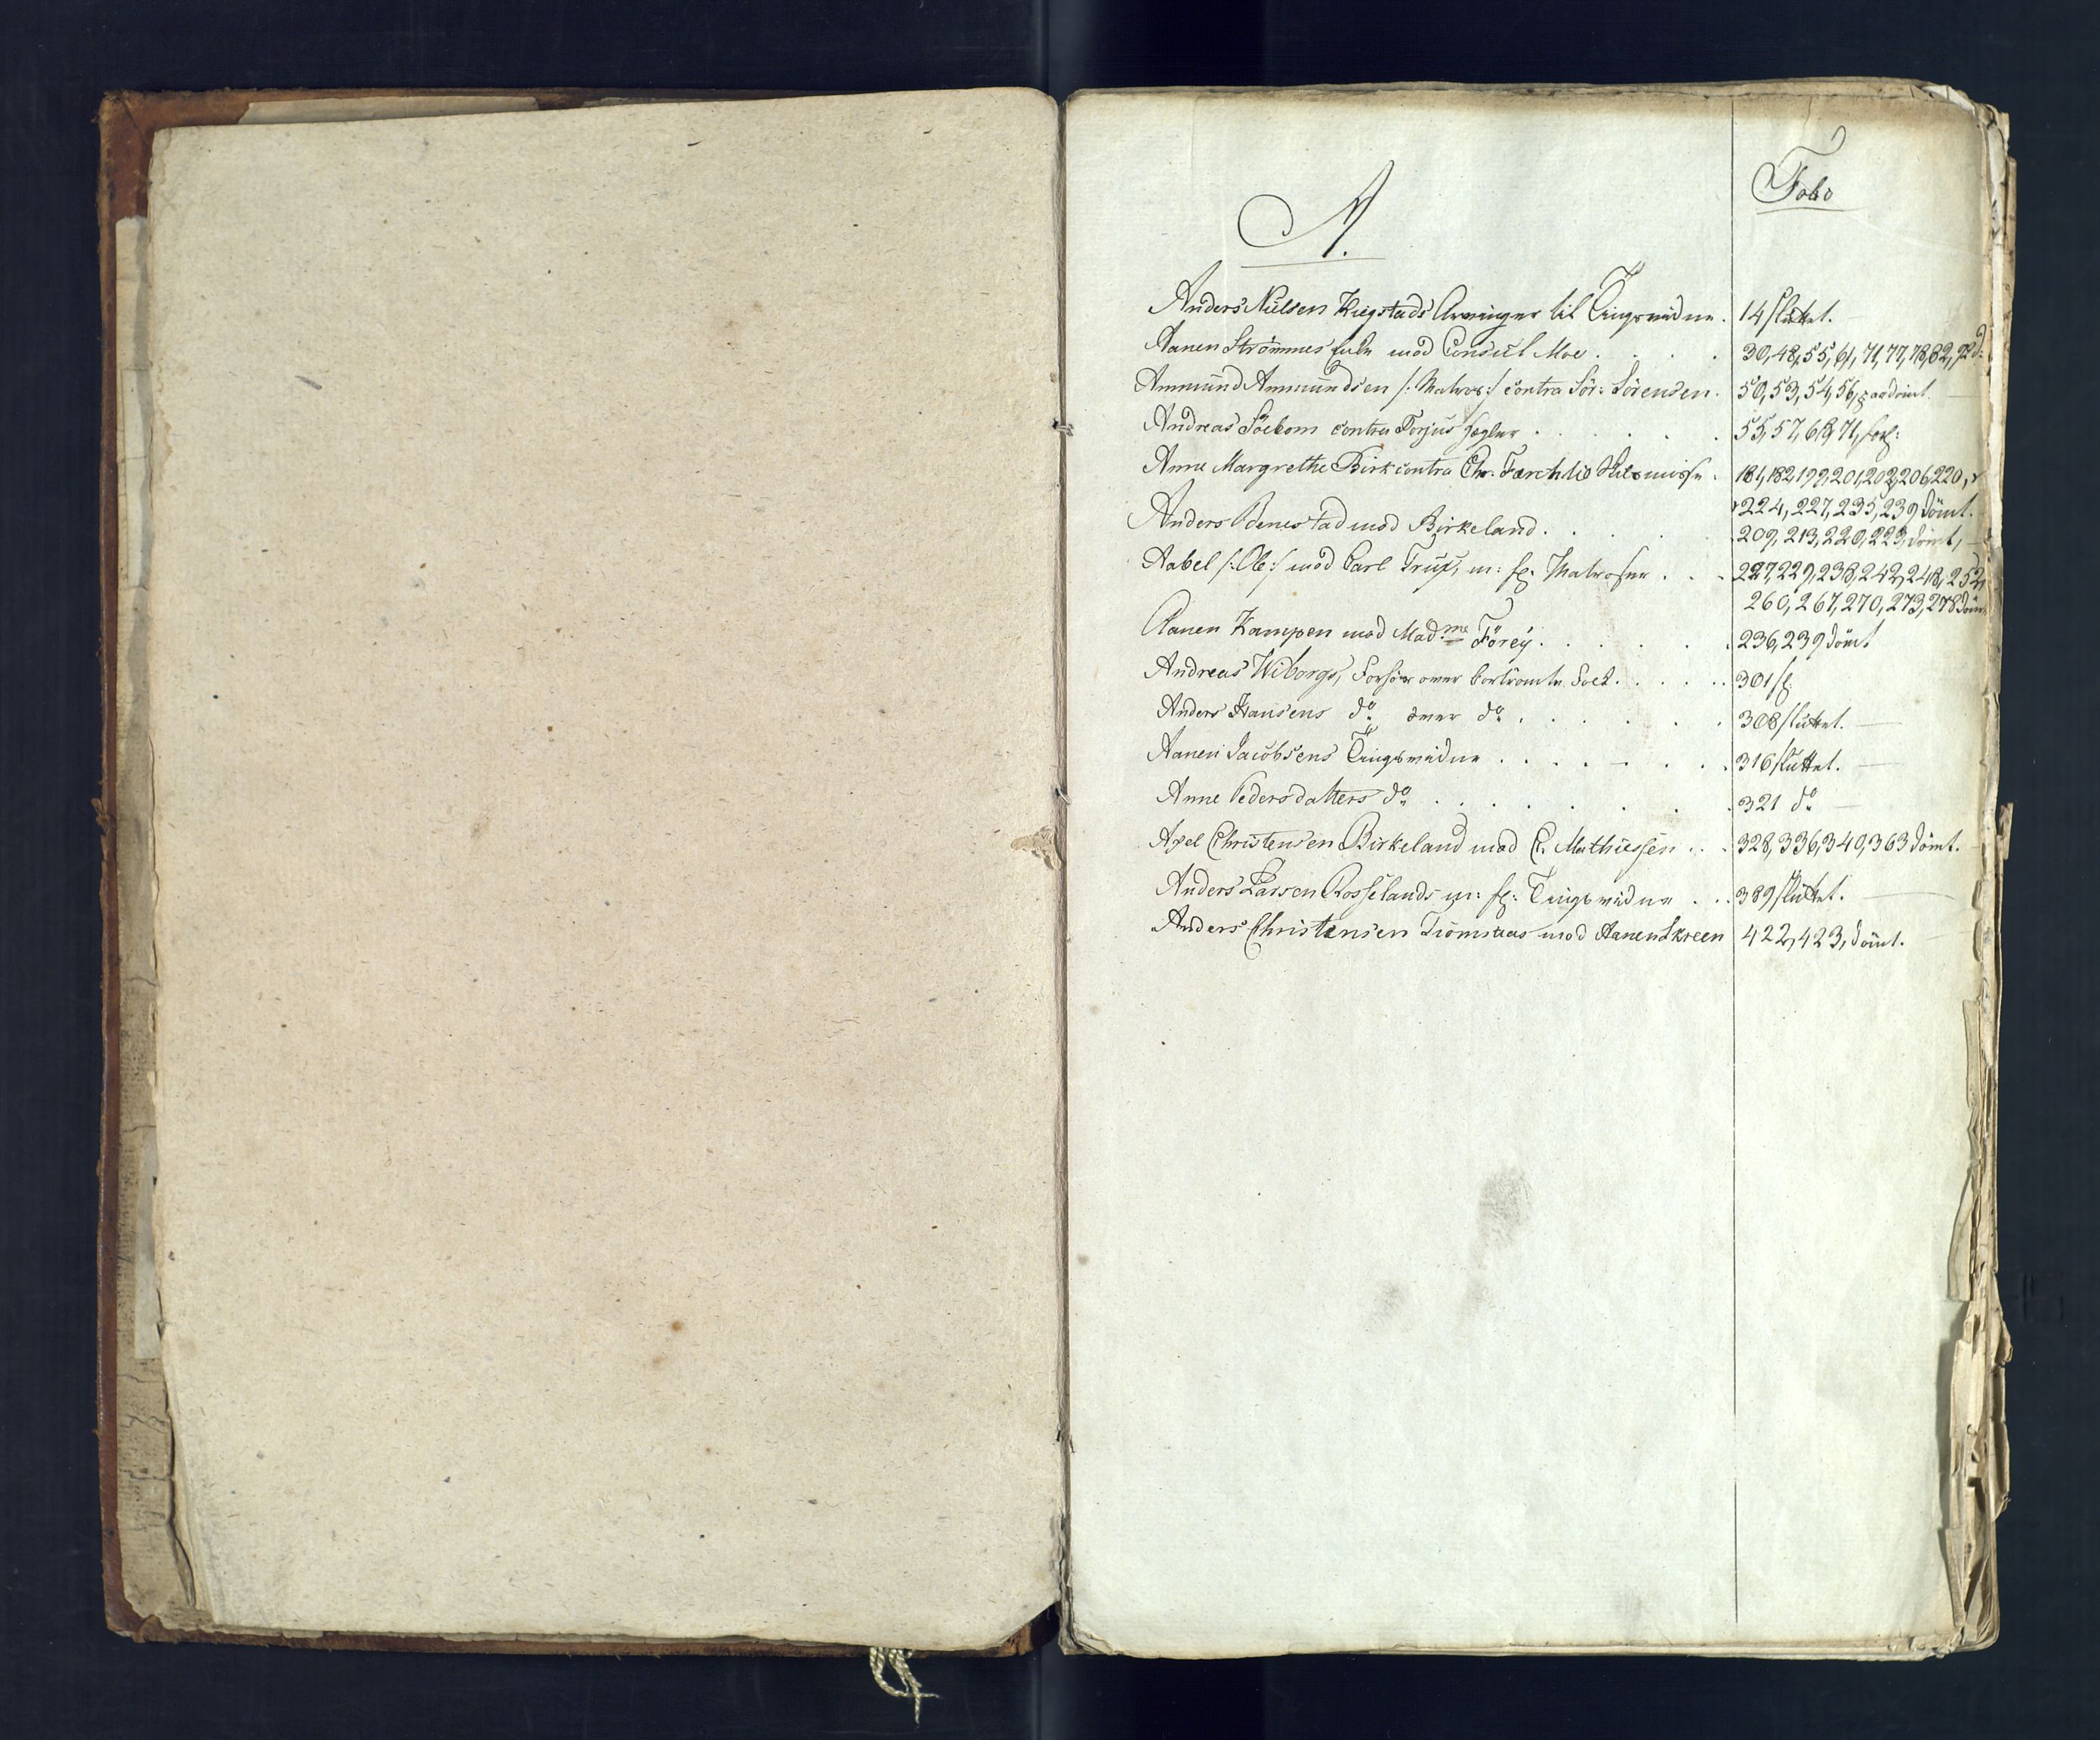 Folio
A.
Anders Nielsen Kigstads Arvinger til Tingsvidne. 14 sluttet.
Aanen Strömmes Enke mod Consul Moe . . . . 30, 48, 55, 61, 71, 77, 78, 82,
Ammund Ammundsen /: Matros :/ contra Sör: Sörensen. 50, 53, 54, 56, paadömt.
Andreas Söebom contra Torjus . . . . . 55, 57, 68, 71,
Anne Margrethe Birk contra Chr. 181, 182, 199, 201, 202, 206, 220,
224, 227, 235, 239 dömt.
Anders Benestad mod Birkeland . . . . 209, 213, 220, 223, dömt,
Aabel /: Ole :/ mod Carl m: fl: Matroser . . . 227, 229, 238, 242, 248, 252,
260, 267, 270, 273, 278 döm
Aanen Kampen mod Mad.me Förey . . . . . 236, 239 dömt
Andreas Wiborgs, Forhör over bortrömte Folk . . . . . 301 sl:
Anders Hansens do over do . . . . . 308 sluttet.
Aanen Jacobsens Tingsvidne . . . . . . . 316 sluttet.
Anne Pedersdatters do . . . . . . 321 do
Axel Christensen Birkeland mod C. Mathiessen . . . 328, 336, 340, 363 dömt.
Anders Larsen Rosselands m: fl: Tingsvidne . . . 389 sluttet.
Anders Christensen Tromaas mod Aanen Skreen 422, 423, dömt.